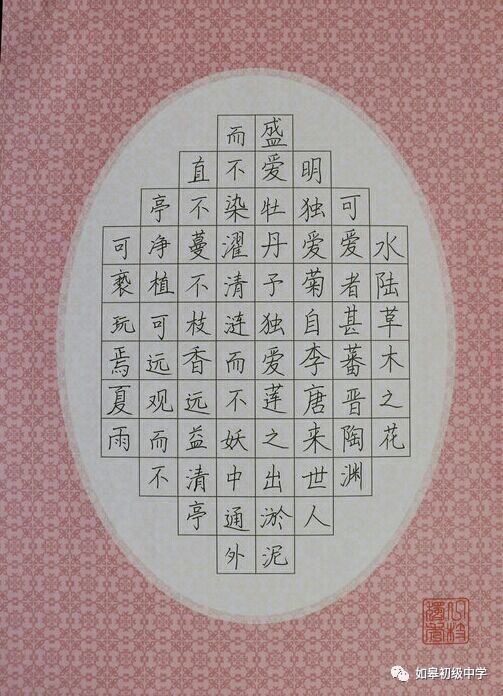 水陆草木之花
可爱者甚蕃晋陶渊
明独爱菊自李唐来世人
盛爱牡丹予独爱莲之出淤泥
而不染濯清涟而不妖中通外
直不蔓不枝香远益清亭
亭净植可远观而不
可亵玩焉夏雨
如皋初级中学